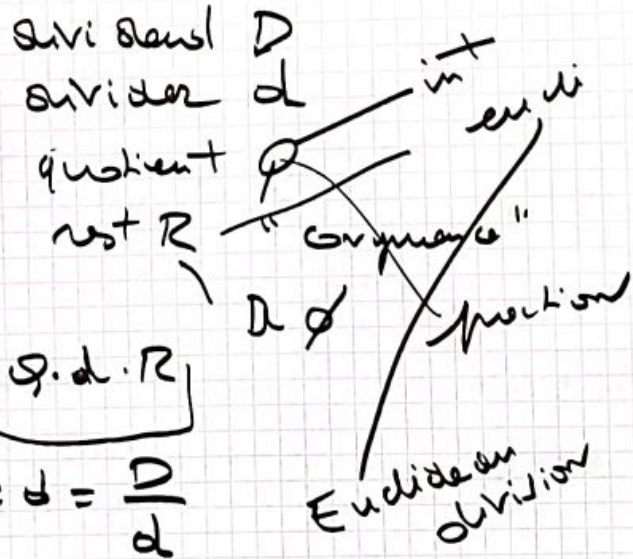 dividend D
divider d
quotient Q
int
eucli
rest R
"congruence"
R ∅
fraction
Q.d.R
= d = D/d
Euclidean
division